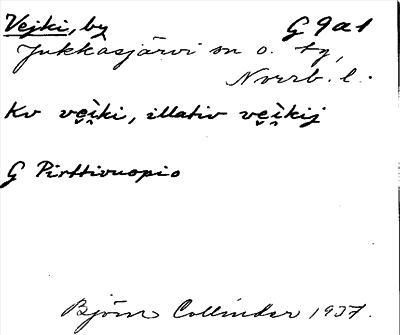 Vejki, by G 9a1
Jukkasjärvi sn o. tg,
Norrb. l.
Kv vẹì̭ki, illativ vẹì̭kij
G Pirttivuopio
Björn Collinder 1937.